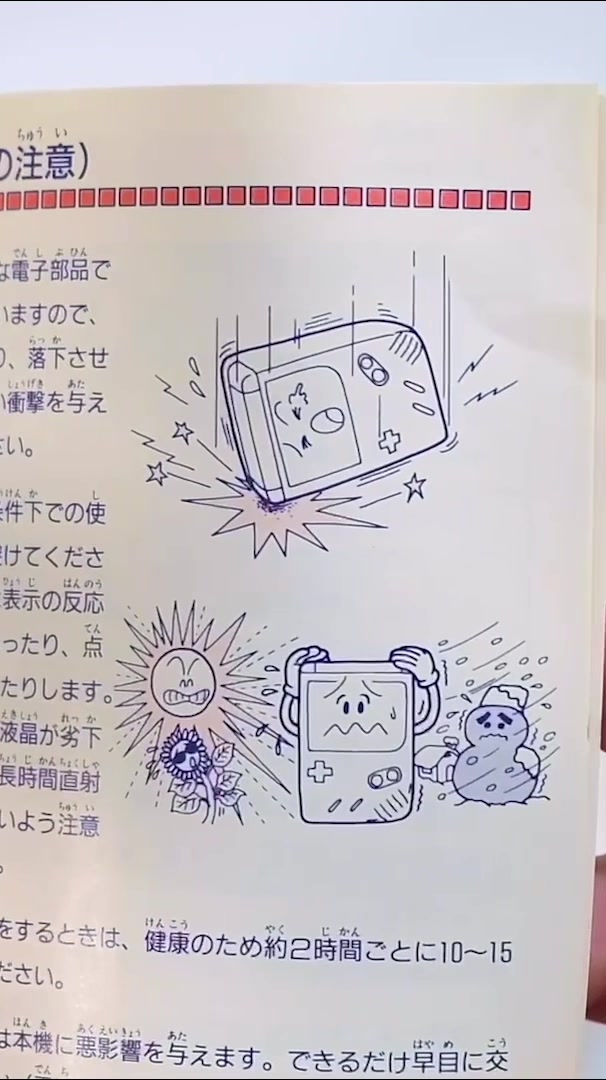 の注意)
な電子部品で
いますので、
り、落下させ
い衝撃を与え
さい。
条件下での使
避けてくださ
表示の反応
ったり、点
たりします。
液晶が劣下
長時間直射
いよう注意
。
をするときは、健康のため約2時間ごとに10〜15
ださい。
は本機に悪影響を与えます。できるだけ早目に交